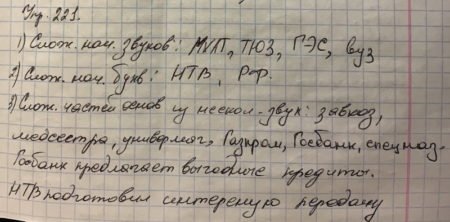 Упр. 221.
1) Слож. нач. звуков: МУП, ТЮЗ, ГЭС, вуз
2) Слож. нач. букв: НТВ, РФ.
3) Слож. частей основ из нескол. звук: завхоз,
медсестра, универмаг, Газпром, Госбанк, спецназ.
Госбанк предлагает выгодные кредиты.
НТВ подготовил интересную передачу